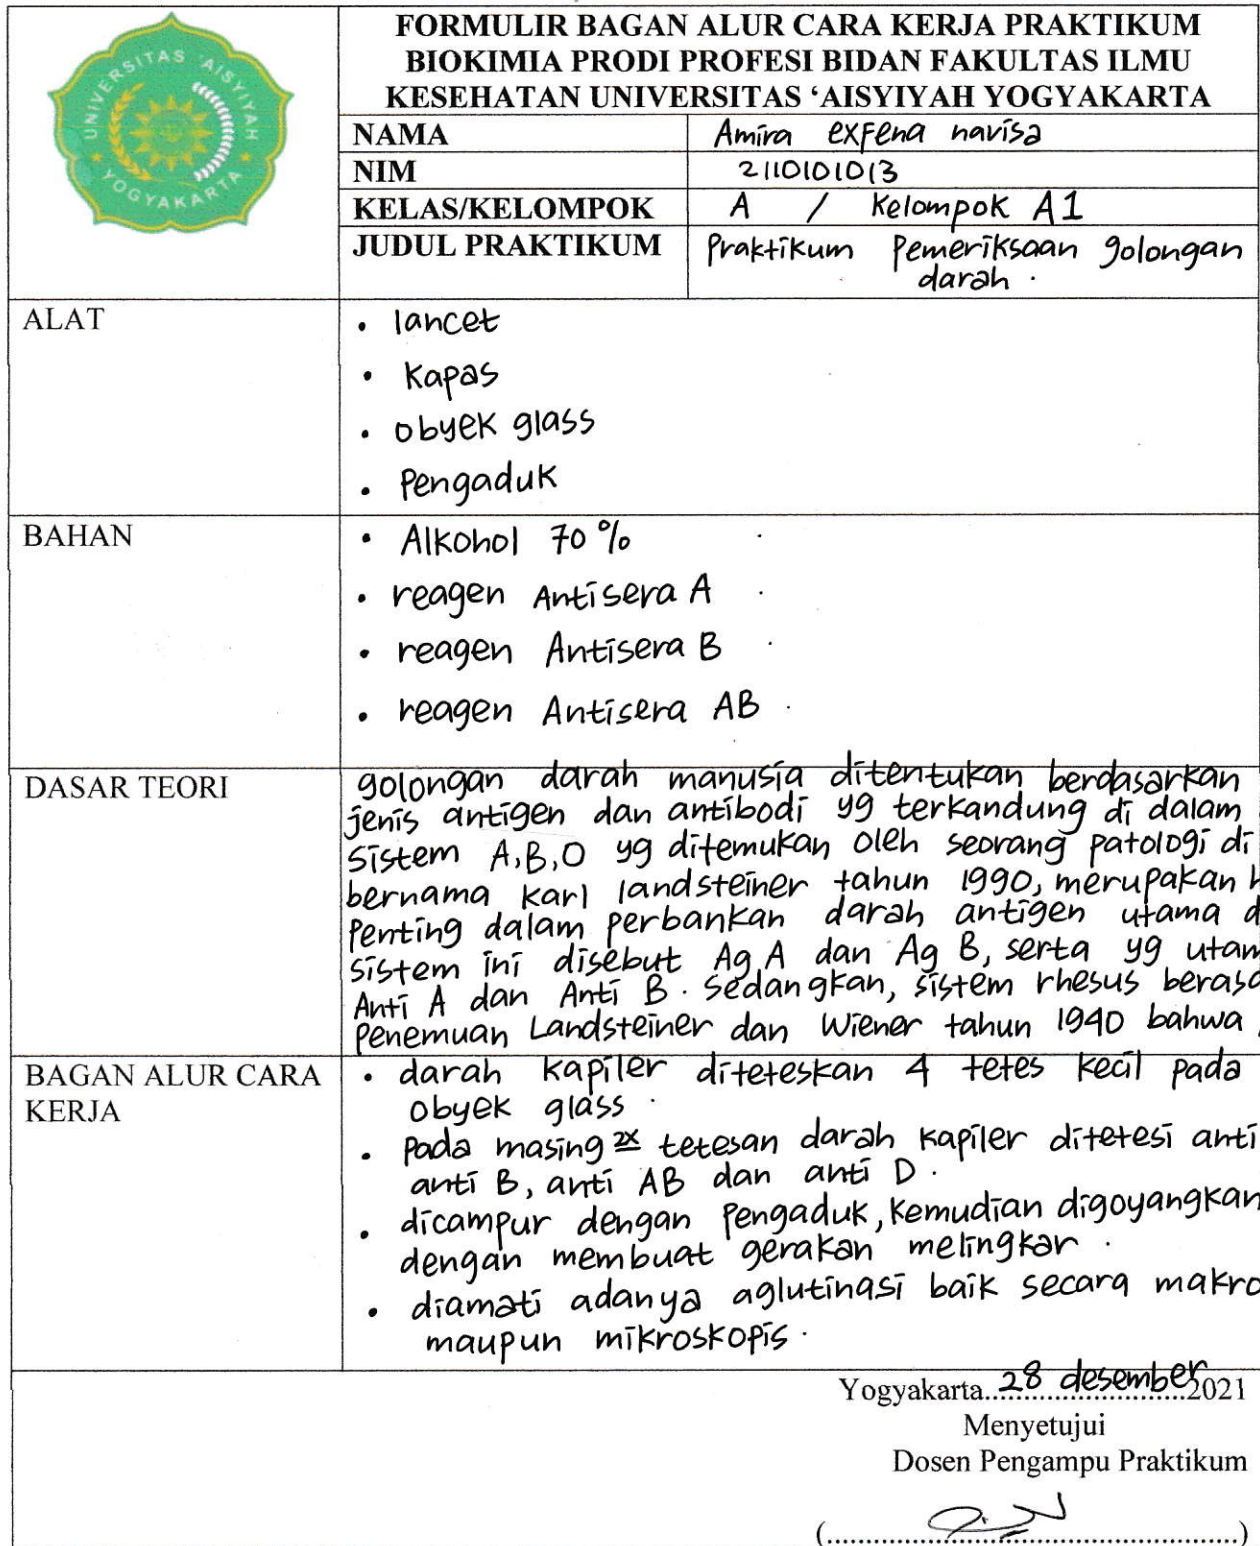 UNIVERSITAS 'AISYIYAH
YOGYAKARTA
FORMULIR BAGAN ALUR CARA KERJA PRAKTIKUM
BIOKIMIA PRODI PROFESI BIDAN FAKULTAS ILMU
KESEHATAN UNIVERSITAS ‘AISYIYAH YOGYAKARTA
NAMA Amira exfena navisa
NIM 2110101013
KELAS/KELOMPOK A / Kelompok A1
JUDUL PRAKTIKUM Praktikum Pemeriksaan golongan
darah.
ALAT
• lancet
• Kapas
• obyek glass
• Pengaduk
BAHAN
• Alkohol 70%
• reagen Antisera A
• reagen Antisera B
• reagen Antisera AB
DASAR TEORI
golongan darah manusia ditentukan berdasarkan
jenis antigen dan antibodi yg terkandung di dalam
sistem A,B,O yg ditemukan oleh seorang patologi di
bernama karl landsteiner tahun 1990, merupakan
Penting dalam perbankan darah antigen utama
sistem ini disebut Ag A dan Ag B, serta yg utam
Anti A dan Anti B. Sedangkan, sistem rhesus beras
Penemuan Landsteiner dan Wiener tahun 1940 bahwa
BAGAN ALUR CARA
KERJA
• darah kapiler diteteskan 4 tetes kecil pada
obyek glass.
• pada masing 2x tetesan darah kapiler ditetesi anti
anti B, anti AB dan anti D.
• dicampur dengan pengaduk, kemudian digoyangkan
dengan membuat gerakan melingkar.
• diamati adanya aglutinasi baik secara makro
maupun mikroskopis.
Yogyakarta..28 desember 2021
Menyetujui
Dosen Pengampu Praktikum
(................................................)